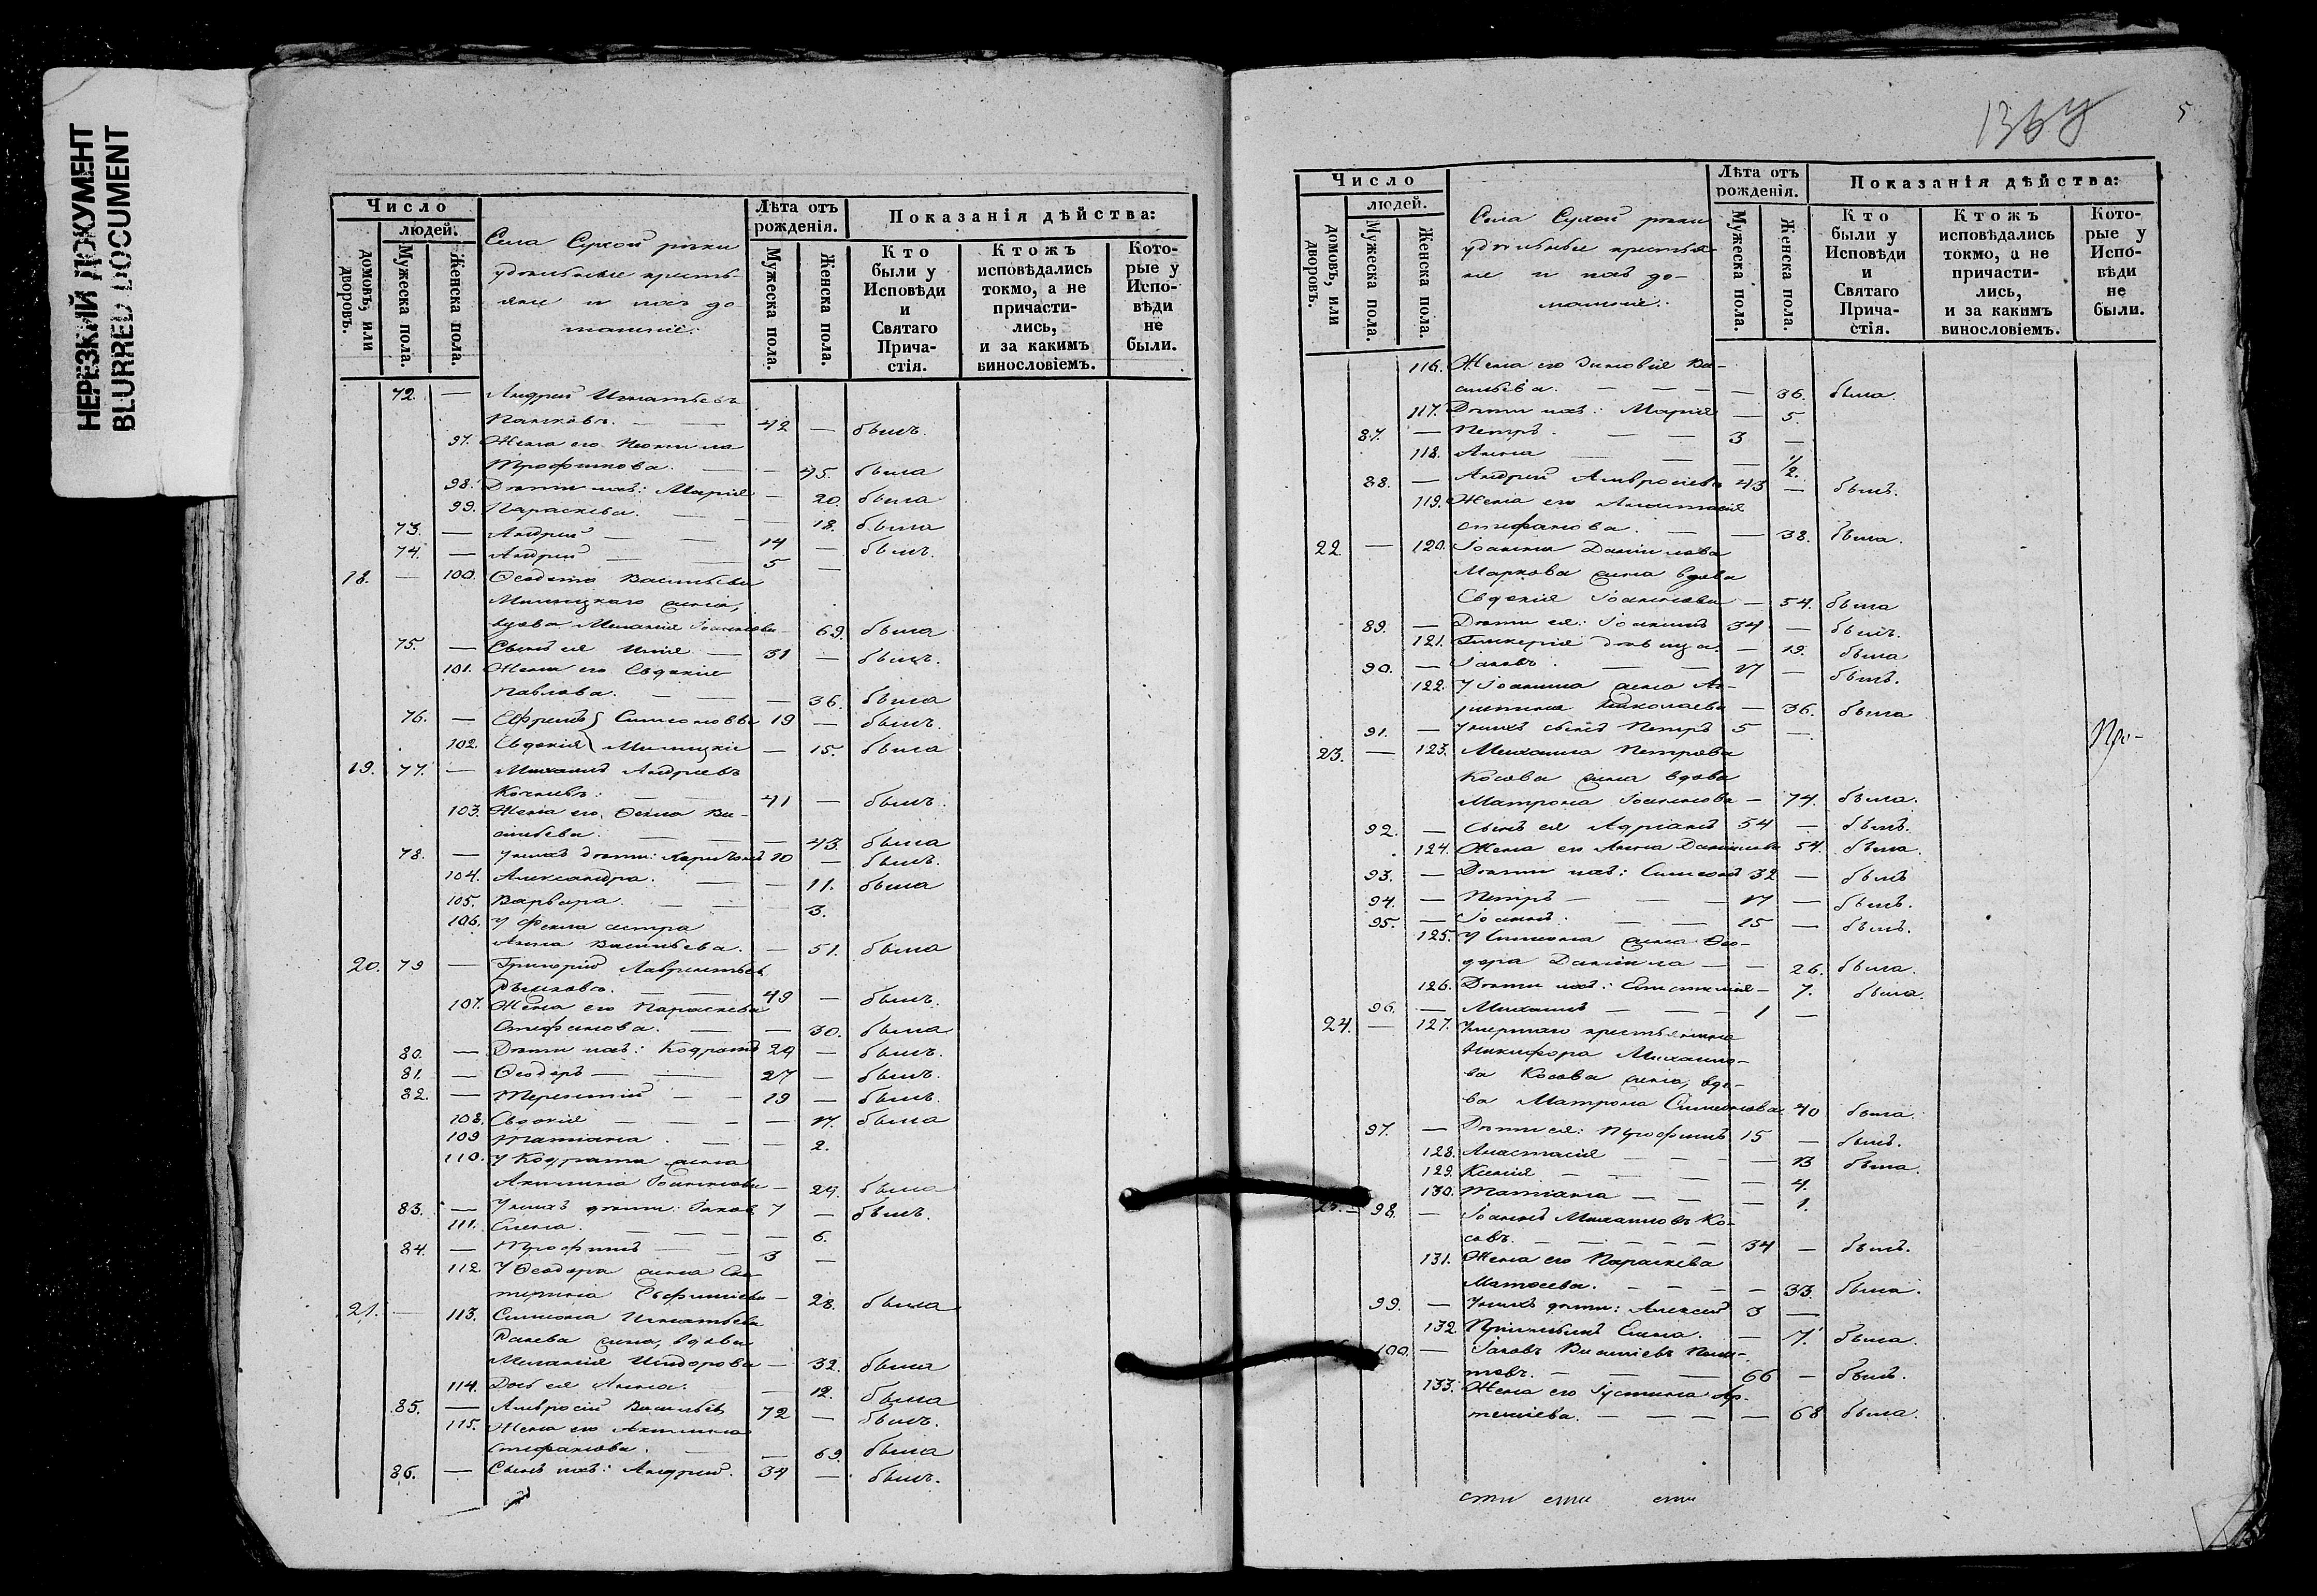 НЕРЕЗКИЙ ДОКУМЕНТ
BLURRED DOCUMENT
Число
людей.
домовъ, или дворовъ.
Мужеска пола.
Женска пола.
Села Сухой рѣки
удѣльные кресть-
яне и ихъ до-
машніе:
Лѣта отъ рожденія.
Мужеска пола.
Женска пола.
Показанія дѣйства:
Кто были у Исповѣди и Святаго Прича-стія.
Ктожъ исповѣдались токмо, а не причасти-лись, и за какимъ винословіемъ.
Кото-рые у Испо-вѣди не были.
72. — Андрей Игнатьевъ
42 — былъ.
97. Жена его
Трофимова. — — 45. была
98. Дѣти ихъ: Марія — 20. была
99. Параскева. — — 18. была
73. — Андрей — — 14 — былъ.
74. — Андрей — — 5 —
18. — 100. Ѳедота Васильева
Милицкаго жена,
вдова Меланія Іоаннова — 69. была
75. — Сынъ ея Илія — 31 — былъ.
101. Жена его Евдокія
Павлова. — — 36. была
76. — Ефремъ } Симеоновы 19 — былъ.
102. Евдокія } Милицкіе — 15. была
19. 77. — Михаилъ Андреевъ
41 — былъ.
103. Жена его Ѳекла Ва-
сильева. — — 43. была
78. — У нихъ дѣти: 10 — былъ.
104. Александра. — — 11. была
105. Варвара. — — 3.
106. У Феклы сестра
Анна Васильева. — 51. была
20. 79 — Григорій Лаврентьевъ
49 — былъ.
107. Жена его Параскева
Стефанова. — — 30. была
80. — Дѣти ихъ: Кодратъ 29 — былъ.
81. — Ѳеодоръ — — 27 — былъ.
82. — Терентій — — 19 — былъ.
108. Евдокія — — — 17. была
109 Татіана. — — 2.
110. У Кодрата жена
Акилина Іоаннова — 29. была
83. — У нихъ дѣти: Іаковъ 7 — былъ.
111. Елена. — — — 6.
84. — Трофимъ — — 3 —
112. У Ѳеодора жена Ека-
терина Евфиміева — 28. была
21. — 113. Симеона Игнатьева
жена, вдова
Меланія Исидорова — 32. была
114. Дочь ея Анна. — 12. была
85. — Амвросій Васильевъ 72 — былъ.
115. Жена его Акилина
Стефанова. — — 69. была
86. — Сынъ ихъ: Андрей. 34 — былъ.
5
Число
людей.
домовъ, или дворовъ.
Мужеска пола.
Женска пола.
Села Сухой рѣки
удѣльные крестья-
не и ихъ до-
машніе:
Лѣта отъ рожденія.
Мужеска пола.
Женска пола.
Показанія дѣйства:
Кто были у Исповѣди и Святаго Прича-стія.
Ктожъ исповѣдались токмо, а не причасти-лись, и за какимъ винословіемъ.
Кото-рые у Испо-вѣди не были.
116. Жена его Зиновія Ва-
сильева. — — — 36. была.
117. Дѣти ихъ: Марія — 5.
87. — Петръ. — — 3 —
118. Анна — — — 1/2.
88. — Андрей Амвросіевъ 43 — былъ.
119. Жена его Анастасія
Стефанова. — — 38. была.
22 — 120. Іоанна Данилова
Маркова жена вдова
Евдокія Іоаннова — 54. была
89. — Дѣти ея: Іоаннъ 34 — былъ.
121. Гликерія дѣвица. — 19. была
90. — Іаковъ. — — 17 — былъ.
122. У Іоанна жена Ак-
Николаева — 36. была
91. — У нихъ сынъ Петръ 5 —
23. — 123. Михаила Петрова
Косова жена вдова
Матрона Іоаннова — 74. была.
92. — Сынъ ея Адріанъ 54 — былъ.
124. Жена его Анна Данилова 54. была.
93. — Дѣти ихъ: Симеонъ 32 — былъ
94. — Петръ — — — 17 — былъ.
95. — Іоаннъ. — — 15 — былъ.
125. У Симеона жена Ѳео-
дора Даниила — — 26. была.
126. Дѣти ихъ: — 7. была.
96. — Михаилъ — — 1 —
24. — 127. Умершаго крестьянина
Никифора Михаило-
ва Косова жена, вдо-
ва Матрона Симеонова 40 была.
97. — Дѣти ея: Трофимъ 15 — былъ.
128. Анастасія — — — 13 была.
129. Ксенія — — — 4.
130. Татіана — — — 1.
25. — 98. — Іоаннъ Михаиловъ Ко-
совъ. — — — 34 — былъ.
131. Жена его Параскева
Матѳеева. — — — 33. была.
99. — У нихъ дѣти: Алексей 3 —
132. Елена. — 7. была.
100. — Іаковъ
— — — 66 — былъ.
133. Жена его Іустина Ар-
теміева. — — — 68 была.